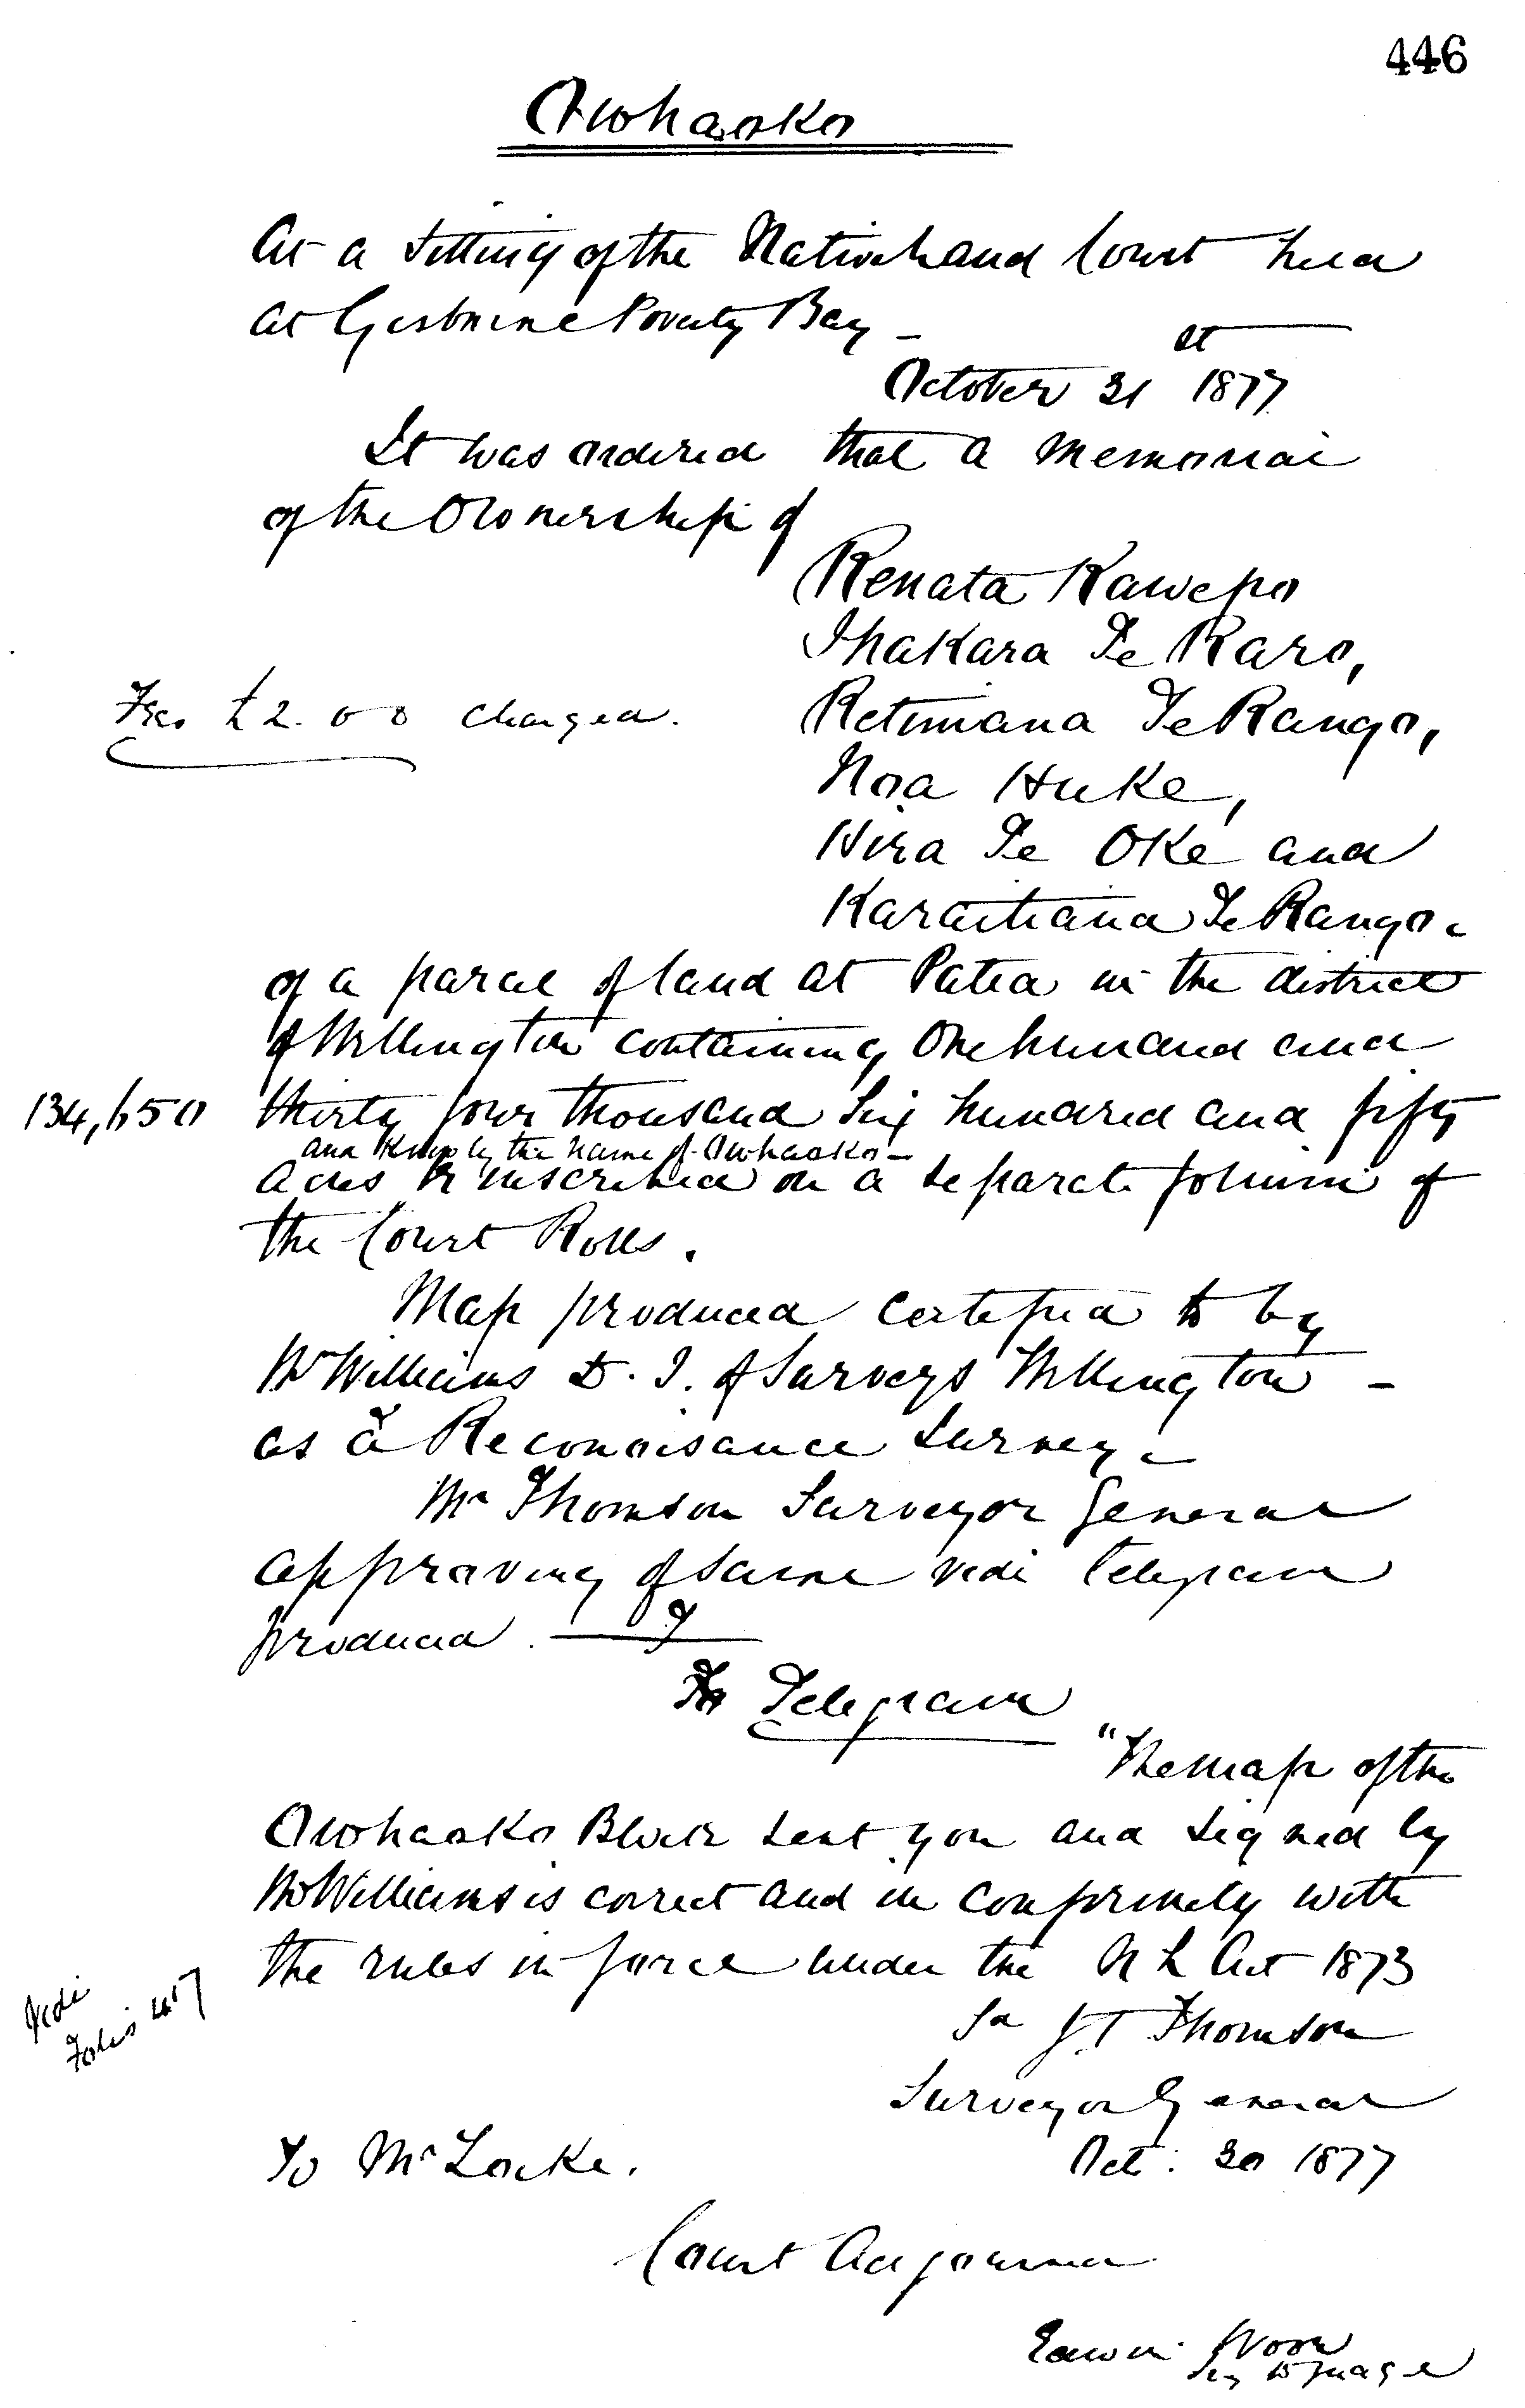 446
Owhaoko
At a sitting of the Native Land Court held
at Gisborne Poverty Bay —
October 31st 1877
It was ordered that a Memorial
of the Ownership of
Renata Kawepo
Ihakara Te Raro,
Retimana Te Rango,
Fees £2.0.0 charged.
Noa Huke,
Hira Te Oke and
Karaitiana Te Rango
of a parcel of land at Patea in the district
of Wellington containing One hundred and
134,650 thirty four thousand six hundred and fifty
and known by the name of Owhaoko —
acres be inscribed on a separate folium of
the Court Rolls.
Map produced certified to by
Mr Williams D. I. of Surveys Wellington —
as a Reconoisance Survey —
Mr Thomson Surveyor General
approving of same vide telegram
produced.
Telegram
"The map of the
Owhaoko Block sent you and signed by
Mr Williams is correct and in conformity with
the rules in force under the N L Act 1873
Vide
Folio 457
Sd J T Thomson
Surveyor General
To Mr Locke. Oct: 30 1877
Court Adjourned
Edwin Woon
to Judge